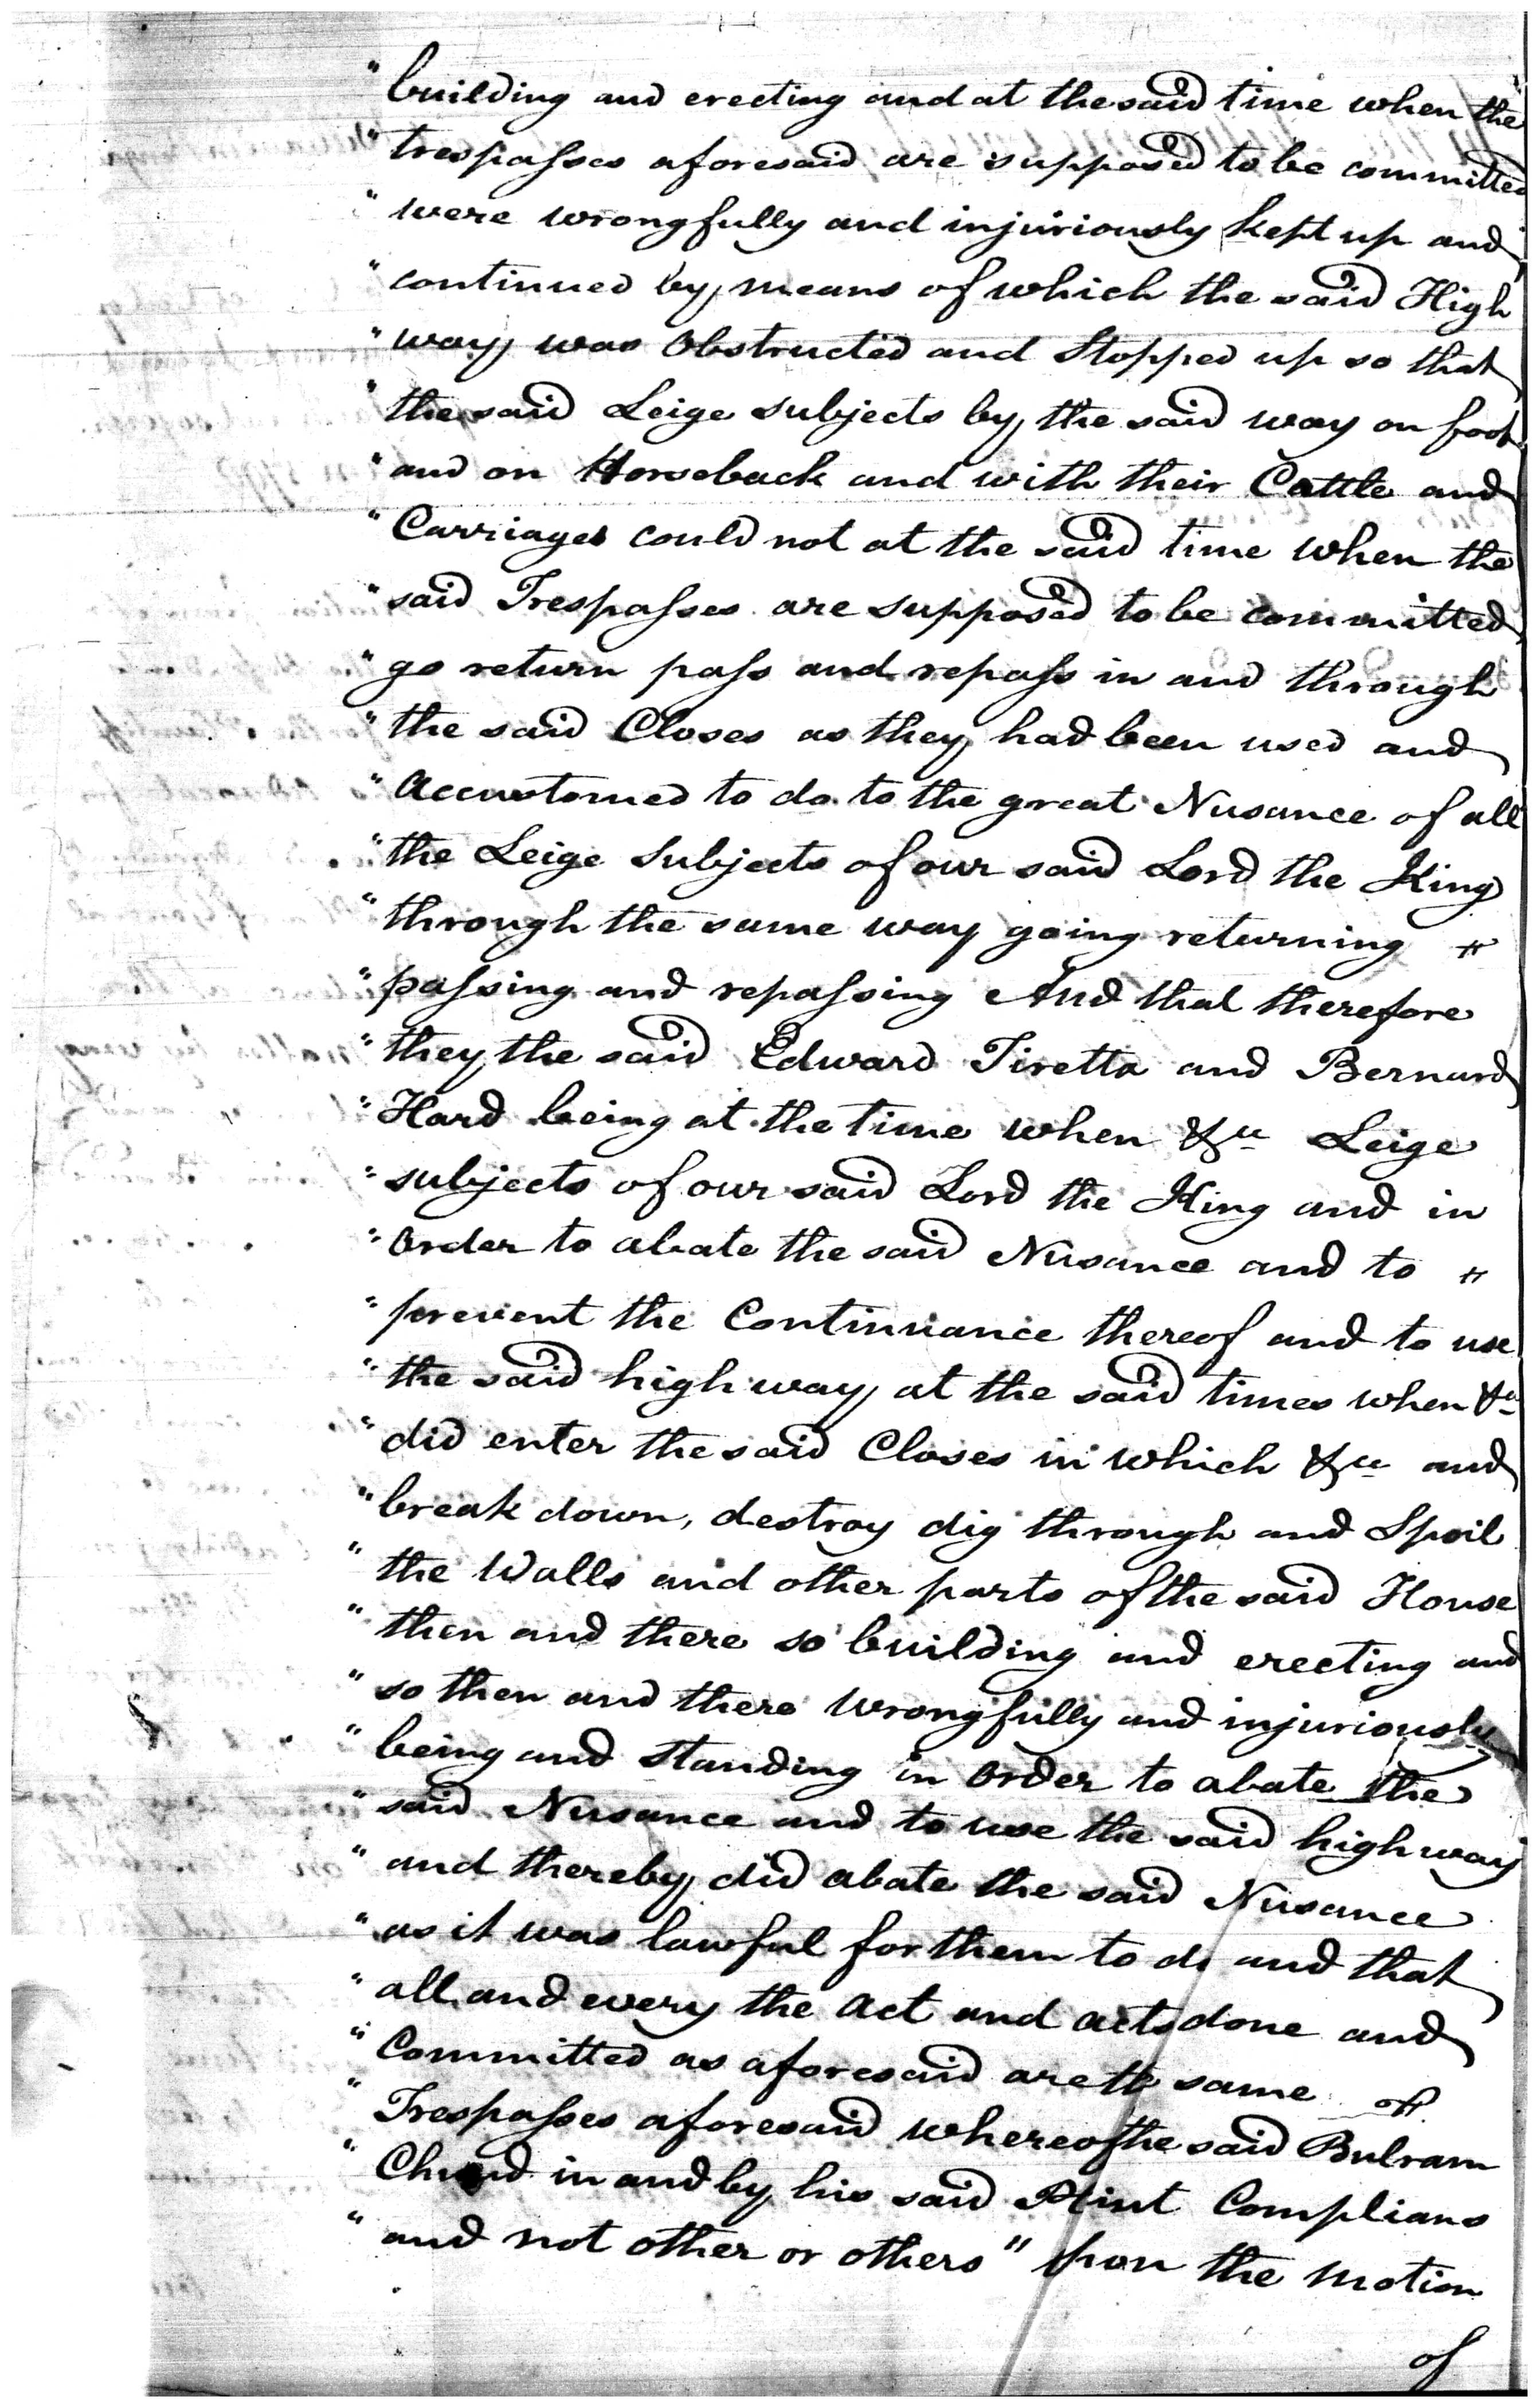 "building and erecting and at the said time when the
"trespasses aforesaid are supposed to be committed
"were wrongfully and injuriously kept up and
"continued by means of which the said High
"way was Obstructed and Stopped up so that
"the said Leige subjects by the said way on foot
"and on Horseback and with their Cattle and
"Carriages could not at the said time when the
"said Trespasses are supposed to be committed
"go return pass and repass in and through
"the said Closes as they had been used and
"Accustomed to do to the great Nusance of all
"the Leige Subjects of our said Lord the King
"through the same way going returning
"passing and repassing And that therefore
"they the said Edward Tiretta and Bernard
"Hard being at the time when &ca Leige
"subjects of our said Lord the King and in
"Order to abate the said Nusance and to
"prevent the Continuance thereof and to use
"the said high way at the said times when &ca
"did enter the said Closes in which &ca and
"break down, destroy dig through and Spoil
"the Walls and other parts of the said House
"then and there so building and erecting and
"so then and there wrongfully and injuriously
"being and standing in Order to abate the
"said Nusance and to use the said high way
"and thereby did abate the said Nusance
"as it was lawful for them to do and that
"all and every the Act and acts done and
"Committed as aforesaid are the same
"Trespasses aforesaid whereof the said Bulram
"Chund in and by his said Plaint Complians
"and not other or others" pon the motion
of